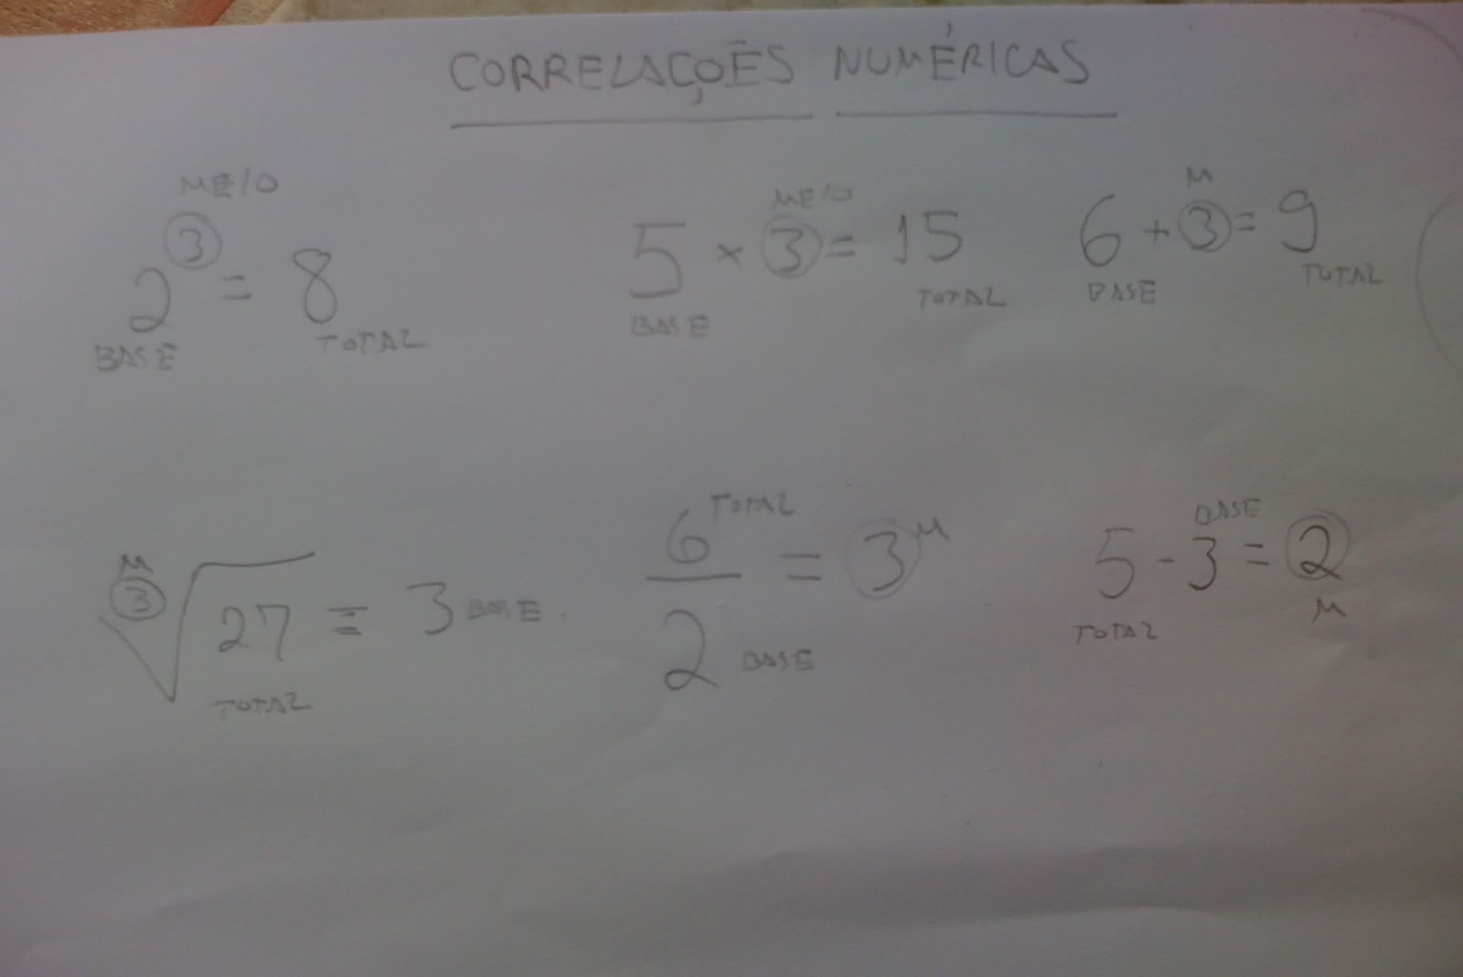 CORRELAÇÕES NUMÉRICAS
MEIO
2³ = 8
BASE TOTAL
MEIO
5 × 3 = 15
BASE TOTAL
M
6 + 3 = 9
BASE TOTAL
M
³√27 = 3 BASE
TOTAL
6 TOTAL
= 3 M
2 BASE
BASE
5 - 3 = 2
TOTAL M